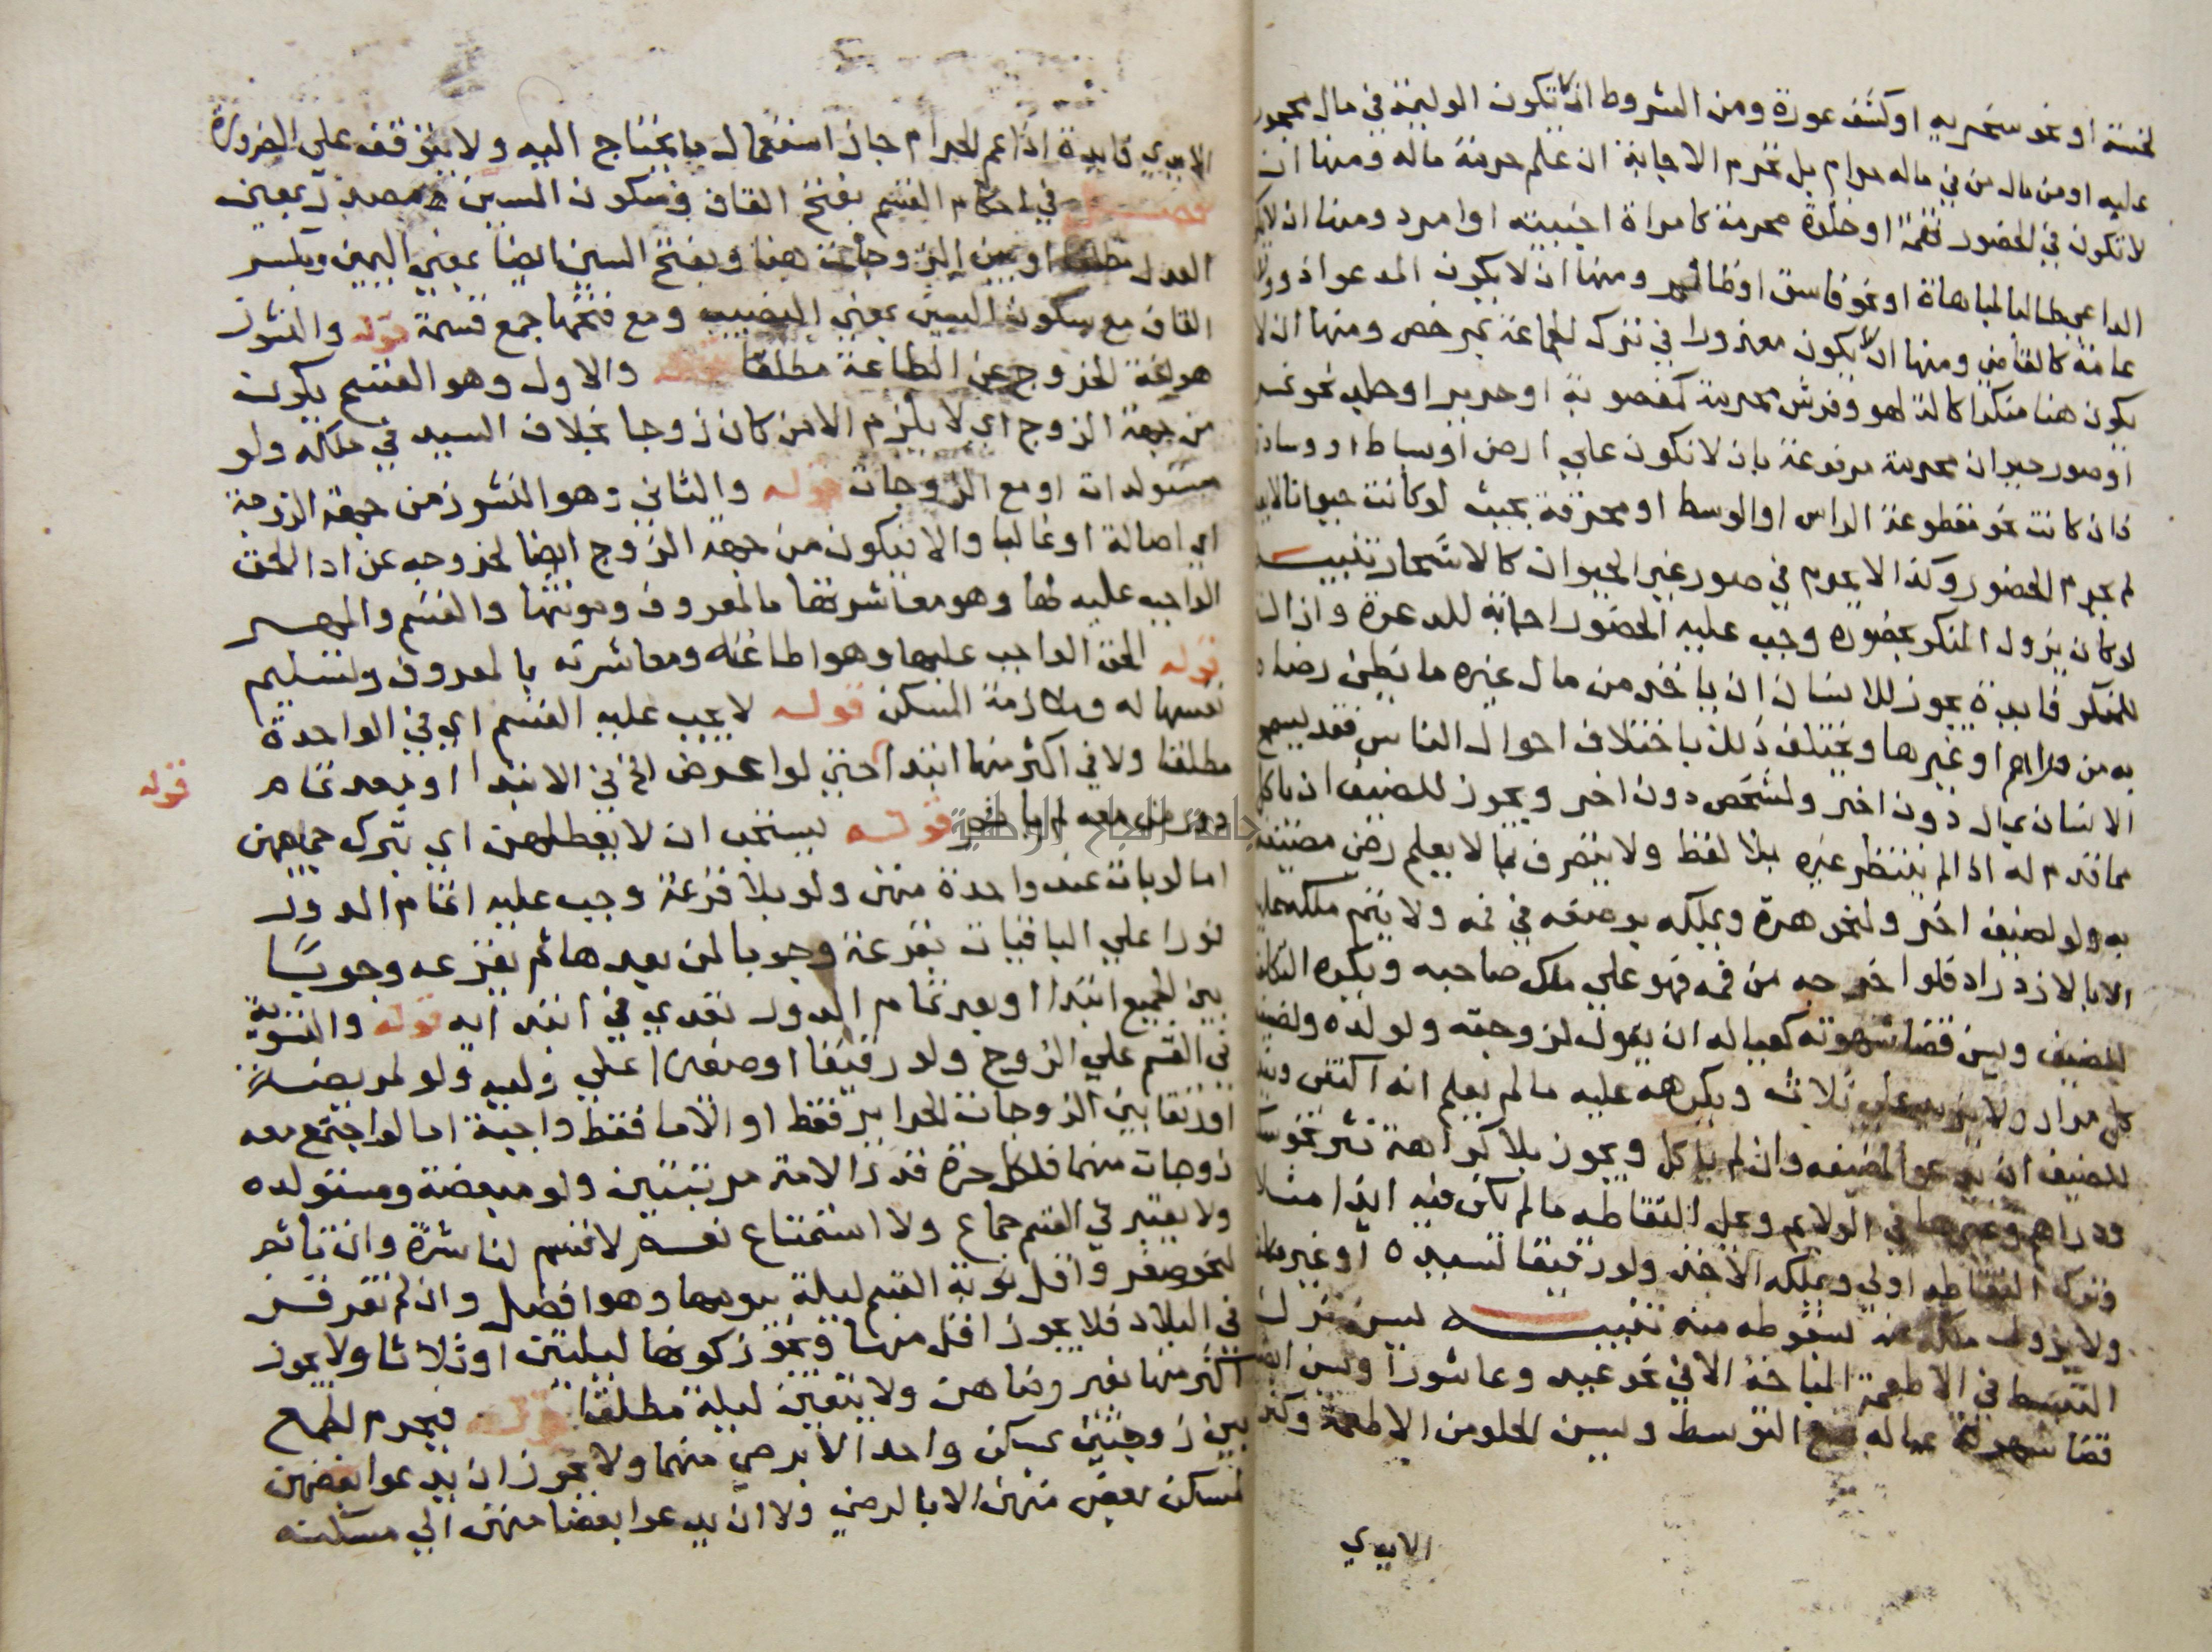 لخسة او نحو سخريه او كشف عورة ومن الشروط ان لا تكون الوليمة في مال محجور
عليه او من مال من في ماله حرام بل تحرم الاجابة ان علم حرمة ماله ومنها ان
لا تكون في الحضور تهمة او خلوة محرمة كامراة اجنبية او امرد ومنها ان لا يكون
الداعي طالبا لمباهاة او نحو فاسق او ظالم ومنها ان لا يكون المدعو اذ ولاية
عامة كالقاضي ومنها ان لا يكون معذورا في ترك الجماعة بمرخص ومنها ان لا
يكون هنا منكرا كالة لهو وفرش محرمة كمغصوبة او حرير او حلي نحو
او صور حيوان محرمة مرفوعة بان لا تكون علي ارض او بساط او وسادة
فان كانت نحو مقطوعة الراس او الوسط او مخرقة بحيث لو كانت حيوانا لا
لم يحرم الحضور وكذا لا يحرم في صور غير الحيوان كالاشجار تنبيه
لو كان يزول المنكر بحضوره وجب عليه الحضور اجابة للدعوة وازالة
للمنكر فايدة يجوز للانسان ان ياخذ من مال غيره ما يظن رضاه
به من دراهم او غيرها ويختلف ذلك باختلاف احوال الناس فقد يسمح
الانسان بمال دون اخر ولشخص دون اخر ويجوز للضيف ان ياكل
مما قدم له اذا لم ينتظر غيره بلا لفظ ولا يتصرف بما لا يعلم رضي مضيفه
به ولو لضيف اخر ولنحو هرة ويملكه بوضعه في فمه ولا يتم ملكه عليه
الا بالازدراد فلو اخرجه من فمه فهو علي ملك صاحبه ويكره التكلف
للضيف ويسن قضا شهوته كعياله ان يقول لزوجته ولولده ولضيفه
كل مرارا ولا يزيد علي ثلاثة ويكرهه عليه ما لم يعلم انه اكتفي ويندب
للضيف ان يدعو لمضيفه وان لم ياكل ويجوز بلا كراهة نثر نحو سكر
ودراهم وغيرها في الولائم وحل التقاطه ما لم يكن فيه ايذا مثلا
وترك التقاطه اولي ويملكه الاخذ ولو رقيقا لسيده او غير مكلف
ولا يزول ملكه عنه بسقوطه منه تنبيه يسن ترك
التبسط في الاطعمة المباحة الا في نحو عيد وعاشورا ويسن ايضا
قضا شهوة عياله مع التوسط ويسن الحلو من الاطعمة وكثرة
الايدي
الايدي فايدة اذا عم الحرام جاز استعمال ما يحتاج اليه ولا يتوقف علي الضرورة
فصل في احكام القسم بفتح القاف وسكون السين مصدر بمعني
العدل مطلقا او بين الزوجات هنا وبفتح السين ايضا بمعني اليمين وبكسر
القاف مع سكون السين بمعني النصيب ومع فتحها جمع قسمة قوله والنشوز
هو لغة الخروج عن الطاعة مطلقا قوله والاول وهو القسم يكون
من جهة الزوج اي لا يلزم الا من كان زوجا بخلاف السيد في ملكه ولو
مستولدات او مع الزوجات قوله والثاني وهو النشوز من جهة الزوجة
اي اصالة او غالبا والا فيكون من جهة الزوج ايضا لخروجه عن ادا الحق
الواجب عليه لها وهو معاشرتها بالمعروف ومونتها والقسم والمهر
قوله الحق الواجب عليها وهو اطاعته ومعاشرته بالمعروف وتسليم
نفسها له وملازمة المسكن قوله لا يجب عليه القسم اي في الواحدة
مطلقا ولا في اكثر منها ابتدا حتي لو اعرض الخ في الابتدا او بعد تمام
قوله
دور من معه لم ياثم قوله يستحب ان لا يعطلهن اي بترك جماعهن
اما لو بات عند واحدة منهن ولو بلا قرعة وجب عليه اتمام الدور
فورا علي الباقيات بقرعة وجوبا لمن بعدها ثم بقرعه وجوبا
بين الجميع ابتدا او بعد تمام الدور تعدي في ابتدايه قوله والتسوية
في القسم علي الزوج ولو رقيقا او صغيرا علي وليه ولو لمريضة
او رتقا بين الزوجات الحراير فقط او الاما فقط واجبة اما لو اجتمع معه
زوجات منهما فلكل حرة قدر الامة مرتين ولو مبعضة ومستولده
ولا يعتبر في القسم جماع ولا استمتاع نعم لا قسم لناشزة وان تاثم
لنحو صغر واقل نوبة القسم ليلة بيومها وهو افضل وان لم تفرقن
في البلاد فلا يجوز اقل منها ويجوز كونها ليلتين او ثلاثا ولا يجوز
اكثر منها بغير رضاهن ولا يتعين ليلة مطلقا قوله فيحرم الجمع
بين زوجتين بمسكن واحد الا برضي منهما ولا يجوز ان يدعوا بعضهن
لمسكن بعض منهن الا بالرضي ولا ان يدعوا بعضا منهن الي مسكنه
جامعة النجاح الوطنية